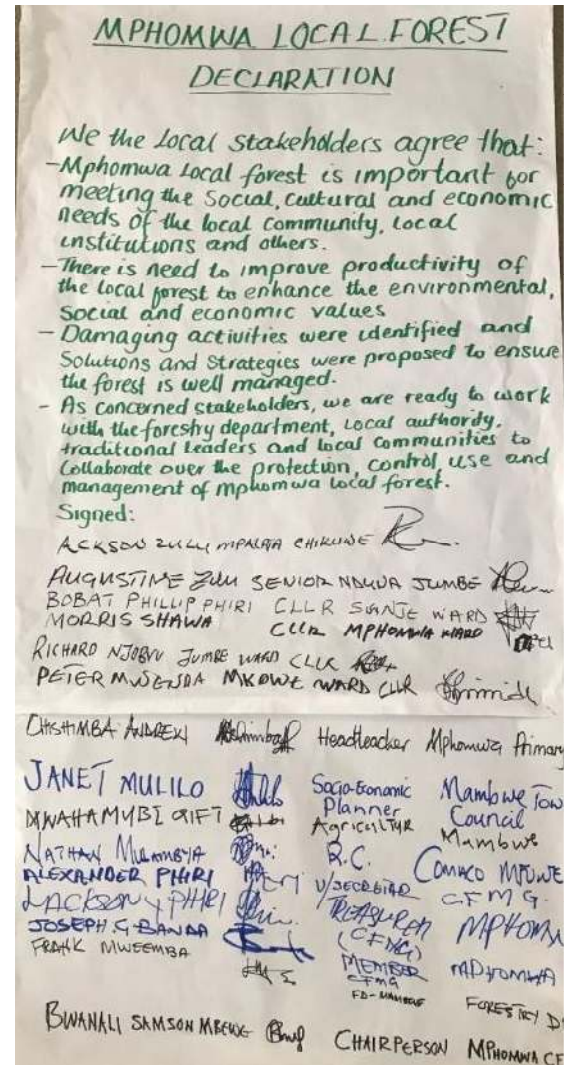 MPHOMWA LOCAL FOREST
DECLARATION
We the Local Stakeholders agree that:
-Mphomwa Local forest is important for
meeting the Social, cultural and economic
needs of the local community, local
institutions and others.
-There is need to improve productivity of
the local forest to enhance the environmental,
Social and economic values
- Damaging activities were identified and
Solutions and Strategies were proposed to ensure
the forest is well managed.
- As concerned stakeholders, we are ready to work
with the foreshy department, local authority,
traditional leaders and local communities to
Collaborate over the protection, control, use and
management of mphomwa local forest.
Signed:
ACKSON ZULU MPALATA CHIKUWE
AUGUSTINE ZULU SENIOR NDUNA JUMBE
BOBAT PHILLIP PHIRI CLLR WARD
MORRIS SHAWA CLLR MPHOMWA WARD
RICHARD NJOBVU JUMBE WARD CLLR
PETER MWENDA MKOWE WARD CLLR
CHISHIMBA ANDREKI Headteacker Mphomwa Primar
JANET MULILO Socio-Economic Mambwe Tow
Planner Council
GIFT Agricultyr Mambwe
NATHAN B.C. COMACO MFUWE
ALEXANDER PHIRI V/SECRETAR CFMG.
JACKSON Y PHIRI TREASURER MPHOMW
(CFMG)
JOSEPH G BANDA MEMBER MPHOMWA
CFMG
FRANK MWEEMBA FD-MAMBWE FORESTRY D
BWANALI SAMSON MBEWE CHAIRPERSON MPHOMWA CF